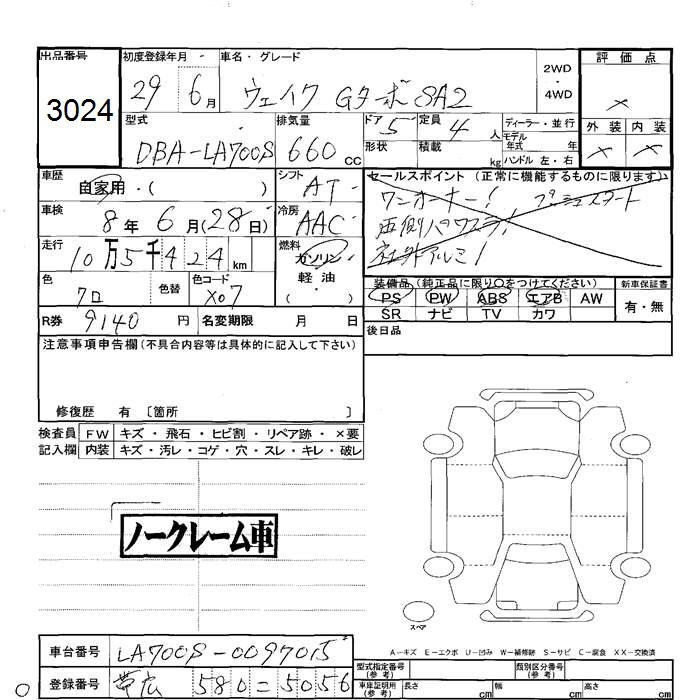 出品番号 初度登録年月 車名・グレード 2WD ・ 4WD 評価点
3024 29 6月 ウェイク Gターボ SA2 ×
型式 排気量 ドア 5 定員 4人 ディーラー・並行 外装 内装
DBA-LA700S 660cc 形状 積載 kg モデル年式 年 ハンドル 左・右 × ×
車歴 自家用・( ) シフト AT セールスポイント (正常に機能するものに限ります)
ワンオーナー! プッシュスタート
車検 8年 6月(28日) 冷房 AAC 両側パワスラ!
走行 10万5千424km 燃料 ガソリン・軽油・( ) 社外アルミ!
色 クロ 色替 色コード X07 装備品 (純正品に限り○をつけてください) 新車保証書
PS PW ABS エアB AW 有・無
SR ナビ TV カワ
R券 9140円 名変期限 月 日 後日品
注意事項申告欄 (不具合内容等は具体的に記入して下さい)
修復歴 有 〔箇所 〕
検査員 FW キズ・飛石・ヒビ割・リペア跡・×要
記入欄 内装 キズ・汚レ・コゲ・穴・スレ・キレ・破レ
ノークレーム車
スペア
A-キズ E-エクボ U-凹み W-補修跡 S-サビ C-腐食 XX-交換済
車台番号 LA700S-0097015 型式指定番号 (参考) 類別区分番号 (参考)
登録番号 帯広 580 = 5056 車庫証明用 (参考) 長さ cm 幅 cm 高さ cm